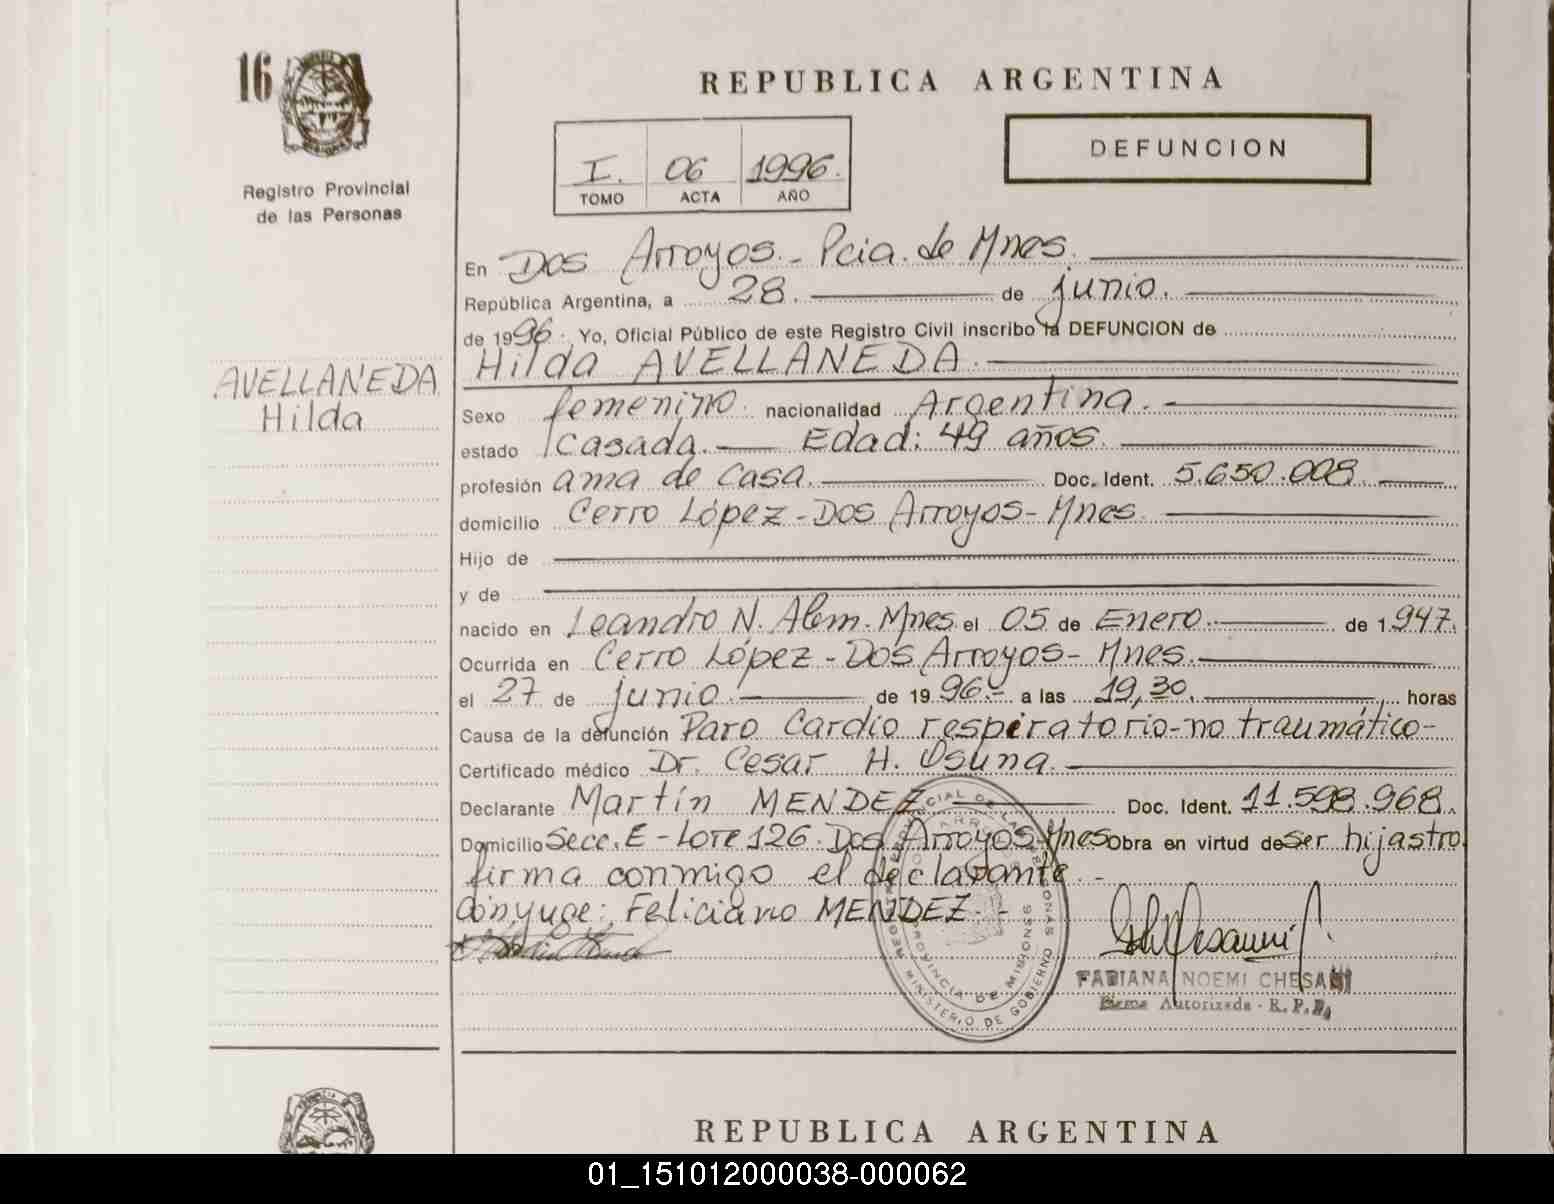 16
Registro Provincial
de las Personas
AVELLANEDA
Hilda
REPUBLICA ARGENTINA
I. 06 1996.
TOMO ACTA AÑO
DEFUNCION
En Dos Arroyos - Pcia. de Mnes.
República Argentina, a 28. de junio.
de 1996. Yo, Oficial Público de este Registro Civil inscribo la DEFUNCION de
Hilda AVELLANEDA.
Sexo femenino. nacionalidad Argentina.
estado Casada. Edad: 49 años.
profesión ama de Casa. Doc. Ident. 5.650.008
domicilio Cerro López - Dos Arroyos - Mnes.
Hijo de
y de
nacido en Leandro N. Alem. Mnes. el 05 de Enero. de 1.947.
Ocurrida en Cerro López - Dos Arroyos - Mnes.
el 27 de junio. de 1996.- a las 19,30. horas
Causa de la defunción Paro Cardio respiratorio - no traumático -
Certificado médico Dr. Cesar H. Osuna.
Declarante Martín MENDEZ Doc. Ident. 11.598.968.
Domicilio Secc. E - Lote 126. Dos Arroyos - Mnes Obra en virtud de ser hijastro
firma conmigo el declarante. -
Cónyuge: Feliciano MENDEZ. -
PROVINCIA DE MISIONES
MINISTERIO DE GOBIERNO
FABIANA NOEMI CHESANI
Firma Autorizada - R. P. P.
REPUBLICA ARGENTINA
01_151012000038-000062